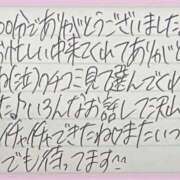 00分でありがとうございました
お忙しい中来てくれてありがと
ね(泣)クチコミ見て選んでくれ
た♪いろんなお話して沢山
イチャイチャできたねまたいつ
でも待ってます^^